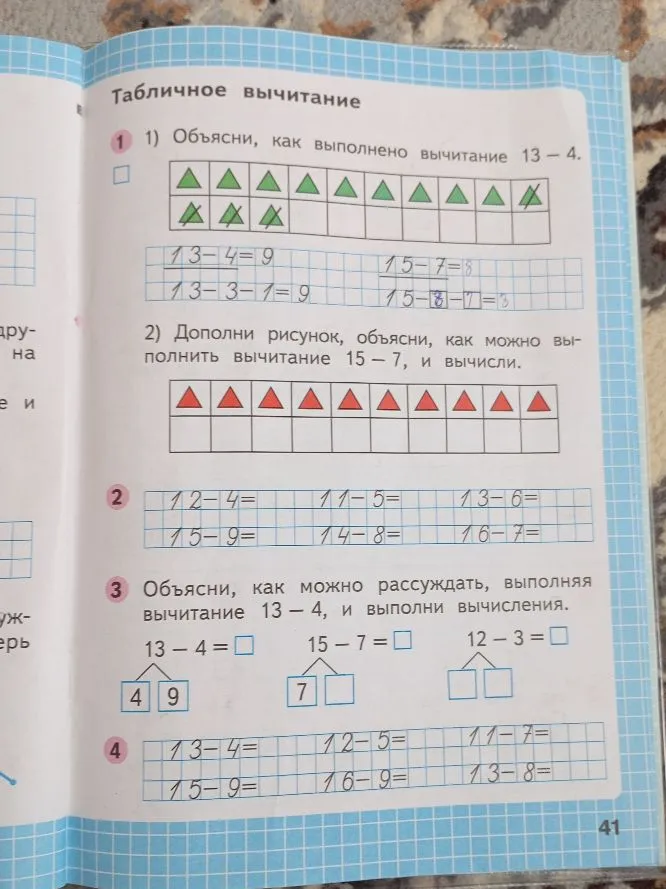 дру-
на
е и
уж-
ерь
Табличное вычитание
1 1) Объясни, как выполнено вычитание 13 – 4.
13–4=9 15–7=8
13–3–1=9 15–8–7=
2) Дополни рисунок, объясни, как можно вы-
полнить вычитание 15 – 7, и вычисли.
2 12–4= 11–5= 13–6=
15–9= 14–8= 16–7=
3 Объясни, как можно рассуждать, выполняя
вычитание 13 – 4, и выполни вычисления.
13 – 4 = 15 – 7 = 12 – 3 =
4 9 7
4 13–4= 12–5= 11–7=
15–9= 16–9= 13–8=
41